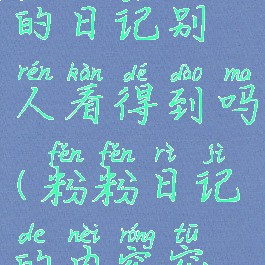 的日记别
rén kàn dé dào ma
人看得到吗
fěn fěn rì jì
(粉粉日记
de nèi róng tū
的内容容